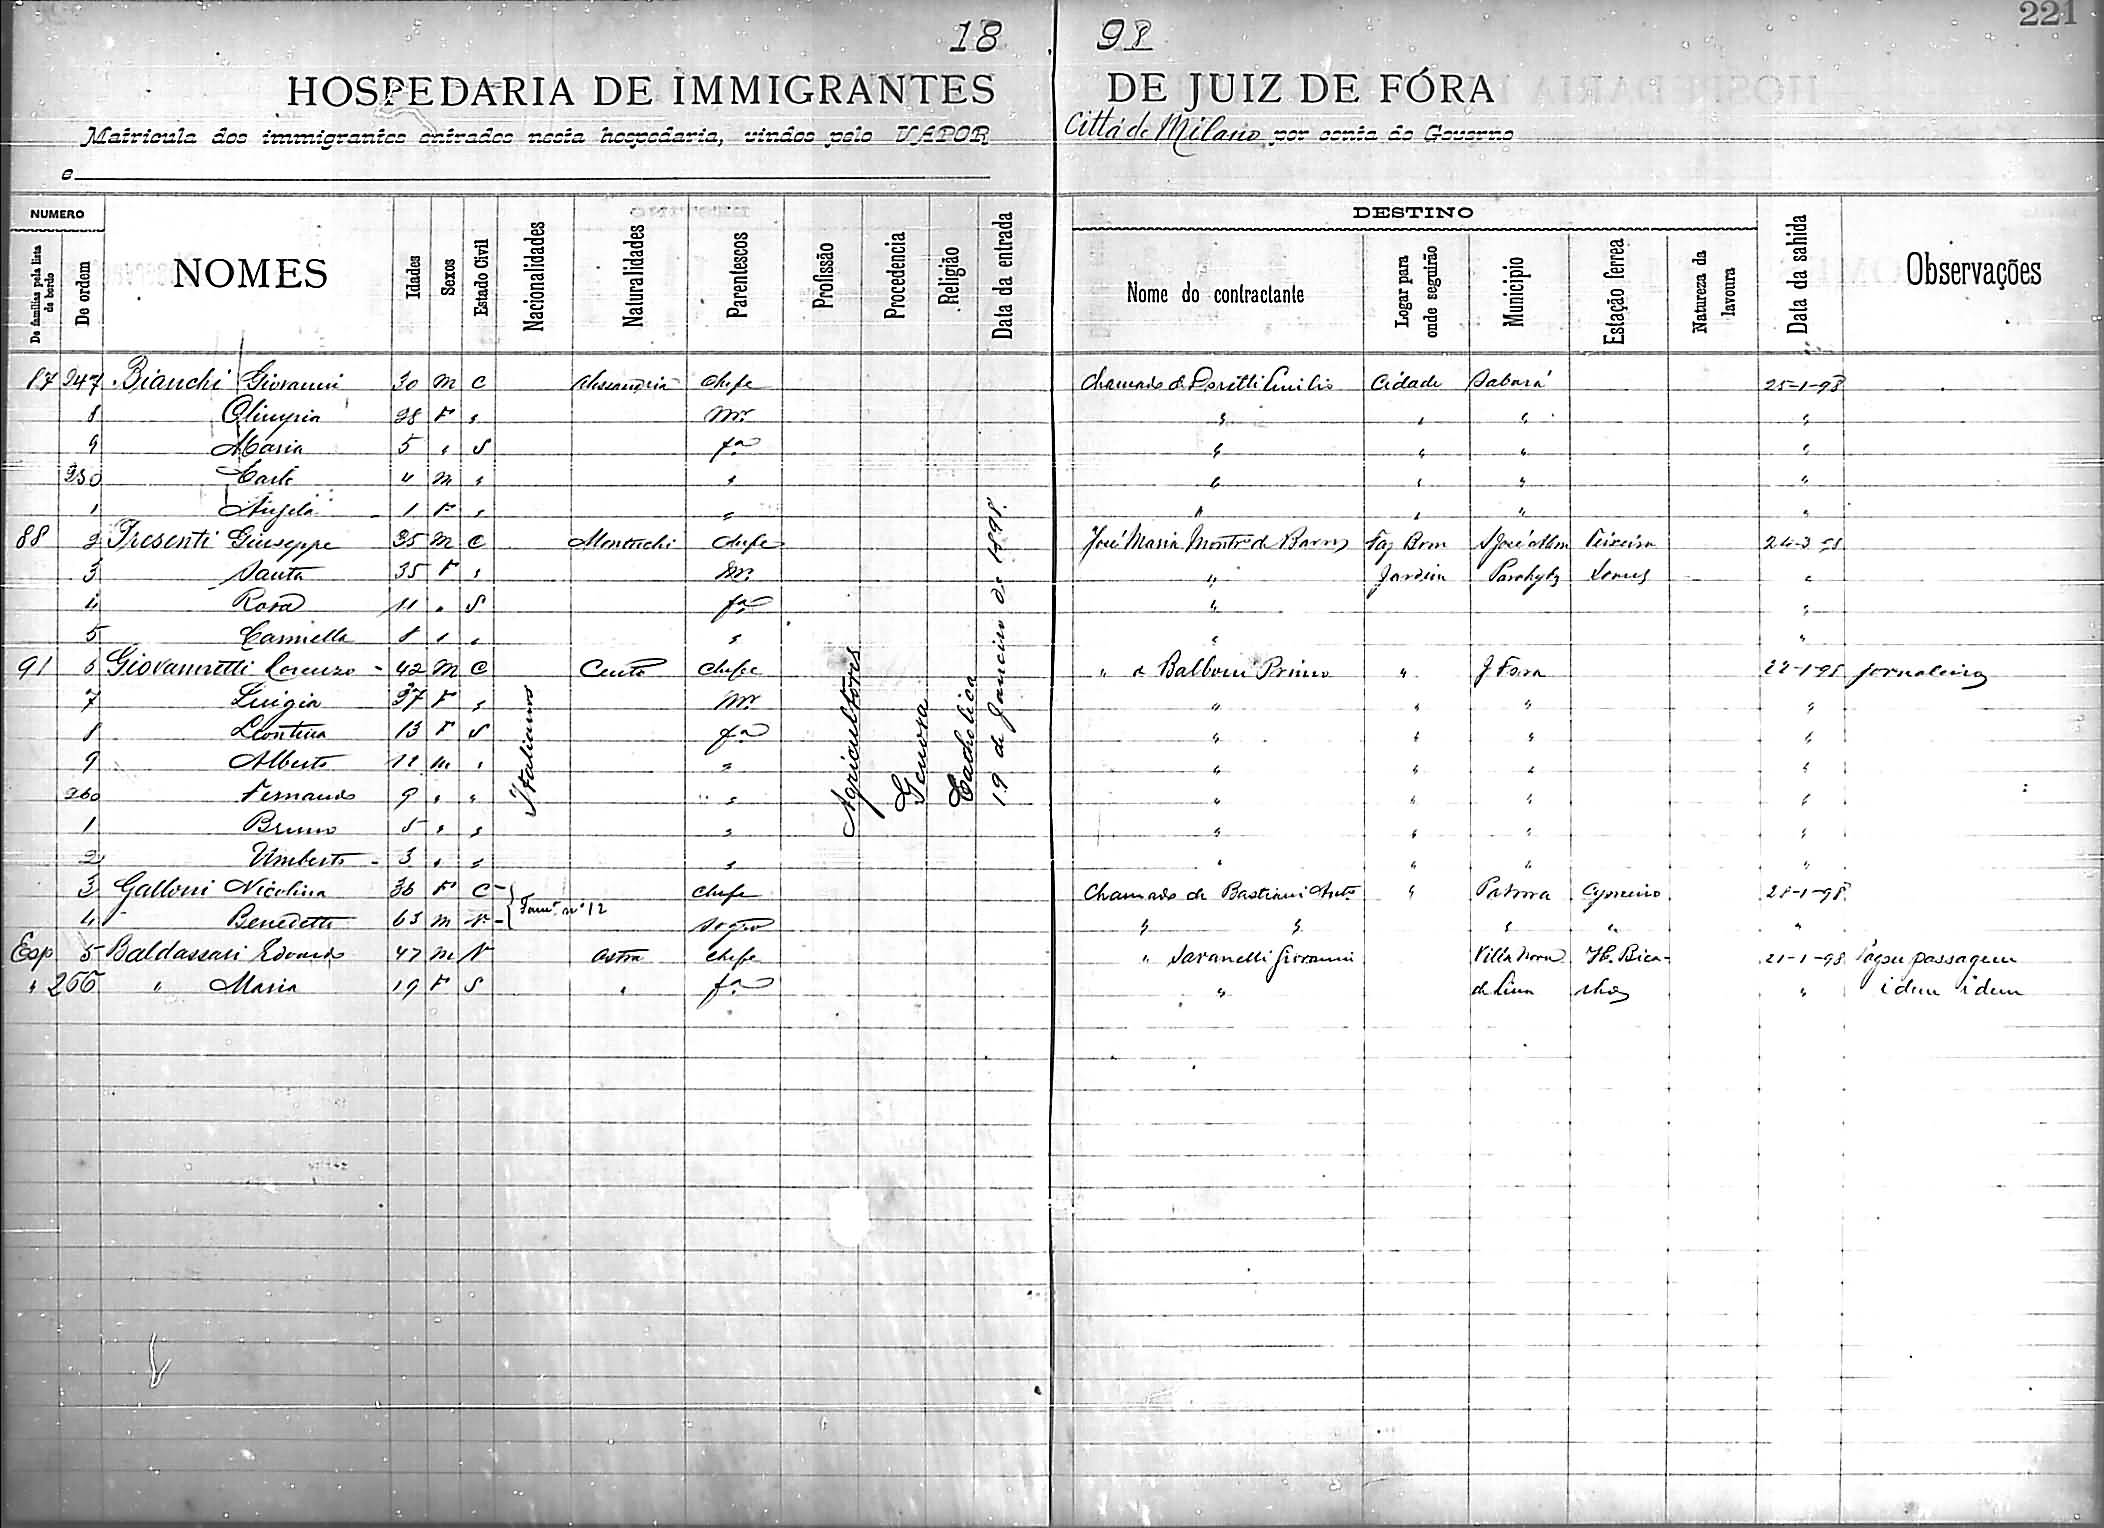 18 98
221
HOSPEDARIA DE IMMIGRANTES DE JUIZ DE FÓRA
Matricula dos immigrantes entrados nesta hospedaria, vindos pelo VAPOR Città di Milano por conta do Governo
e
NUMERO
De familias pela lista de bordo
De ordem
NOMES
Idades
Sexos
Estado Civil
Nacionalidades
Naturalidades
Parentescos
Profissão
Procedencia
Religião
Data da entrada
DESTINO
Nome do contractante
Logar para onde seguirão
Municipio
Estação ferrea
Natureza da lavoura
Data da sahida
Observações
87 247 Bianchi Giovanni 30 M C Alessandria Chefe Chamado de Emilio Cidade Sabará 25-1-98
8 Olimpia 28 F " Mer " " " "
9 Maria 5 " S fa " " " "
250 Carlo 4 M " " " " " "
1 Angela 1 F " " " " " "
88 2 Presenti Giuseppe 35 M C Monterchi Chefe José Maria Montro de Barros Faz Bom S José Alem Teixeira
3 Santa 35 F " Mer " Jardim Parahyba Soares "
4 Rosa 11 " S fa " "
5 Carmella 8 " " " " "
91 6 Giovannetti Lorenzo 42 M C Cento Chefe " de Balboni Primo " J Fora 22-1-98 jornaleiro
7 Luigia 37 F " Mer " " " "
8 Leontina 13 F S fa " " " "
9 Alberto 11 M " " " " " "
260 Fernando 9 " " " " " " "
1 Bruno 5 " " " " " " "
2 Umberto 3 " " " " " " "
3 Galloni Nicolina 36 F C Chefe Chamado de Bastiani Anto " 28-1-98
4 Benedetto 63 M V Fama no 12 Sogro " " " " "
Esp 5 Baldassari Edoardo 47 M V Chefe " Savanelli Giovanni Villa Nova H. Bica- 21-1-98 Pagou passagem
" 266 " Maria 19 F S " fa " de Lima lho " idem idem
Italianos
Agricultores
Genova
Catholica
19 de Janeiro de 1898.